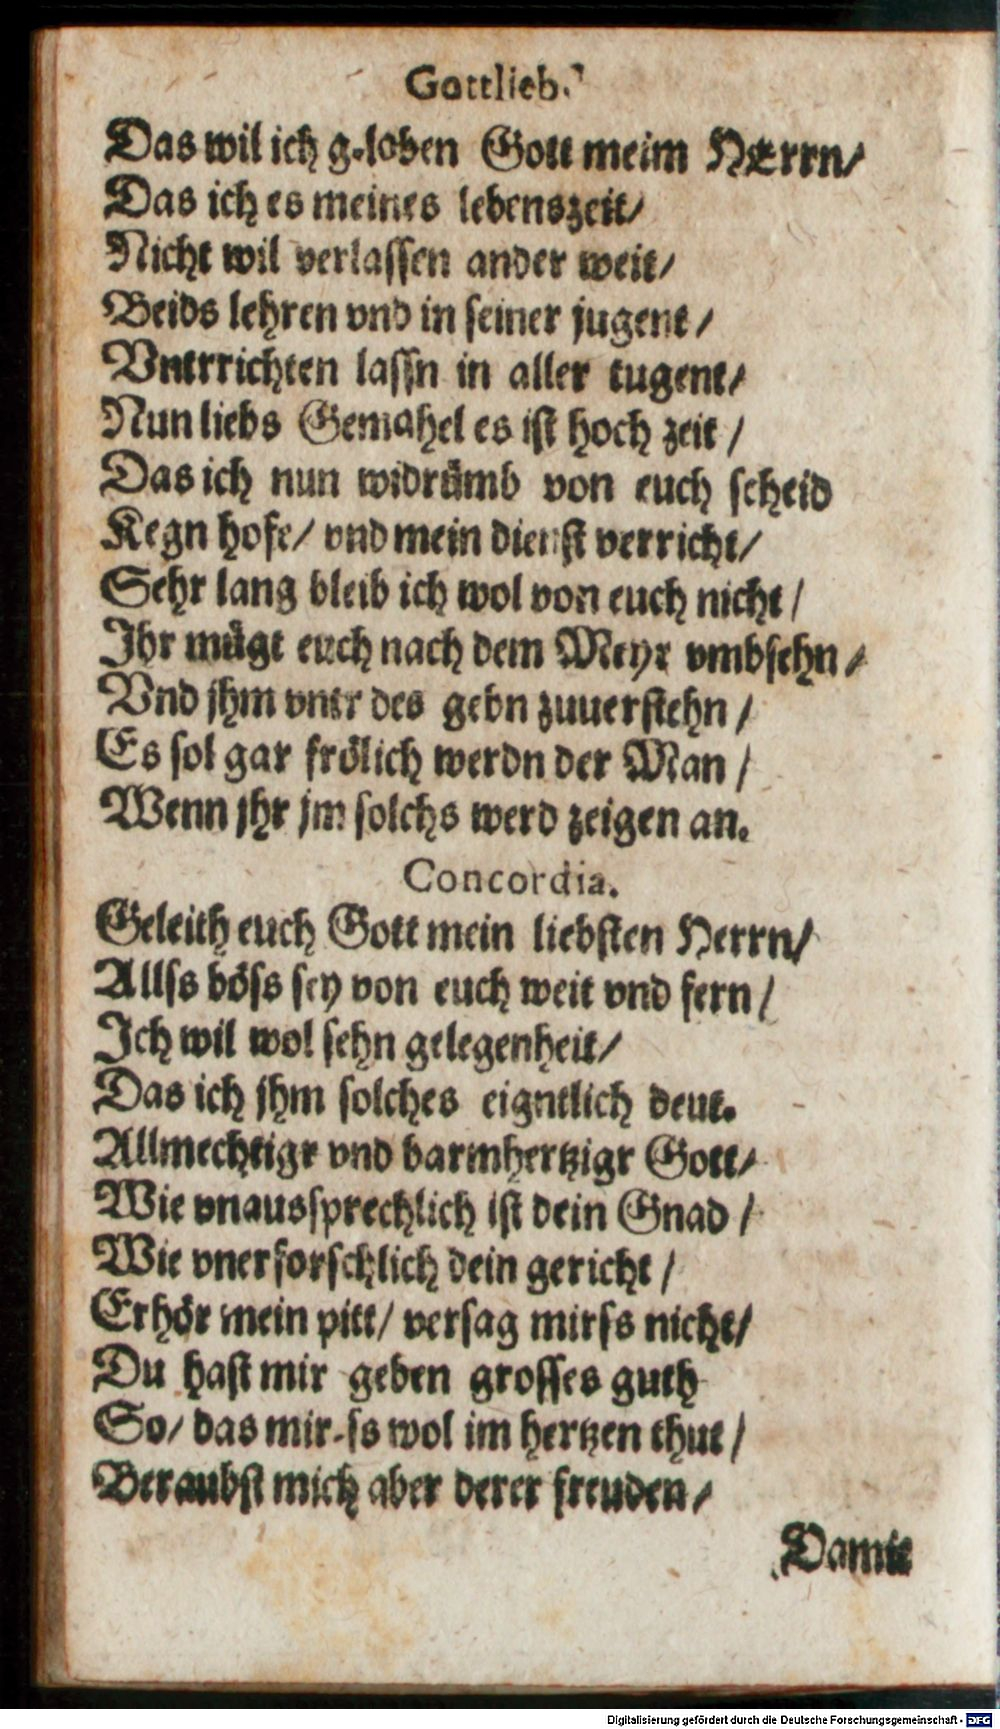 Gottlieb.
Das wil ich geloben Gott meim HErrn/
Das ich es meines lebenszeit/
Nicht wil verlassen ander weit/
Beids lehren vnd in seiner jugent/
Vnterrichten lassn in aller tugent/
Nun liebs Gemahel es ist hoch zeit/
Das ich nun widrümb von euch scheid
Kegn hofe/ vnd mein dienst verricht/
Sehr lang bleib ich wol von euch nicht/
Ihr mügt euch nach dem Meyr vmbsehn/
Vnd jhm vntr des gebn zuuerstehn/
Es sol gar frölich werdn der Man/
Wenn jhr jm solchs werd zeigen an.
Concordia.
Geleith euch Gott mein liebsten Herrn/
Allss böss sey von euch weit vnd fern/
Ich wil wol sehn gelegenheit/
Das ich jhm solches eigntlich deut.
Allmechtigr vnd barmhertzigr Gott/
Wie vnaussprechlich ist dein Gnad/
Wie vnerforschlich dein gericht/
Erhör mein pitt/ versag mirss nicht/
Du hast mir geben grosses guth
So/ das mir-ss wol im hertzen thut/
Beraubst mich aber derer freuden/
Damit
Digitalisierung gefördert durch die Deutsche Forschungsgemeinschaft - DFG